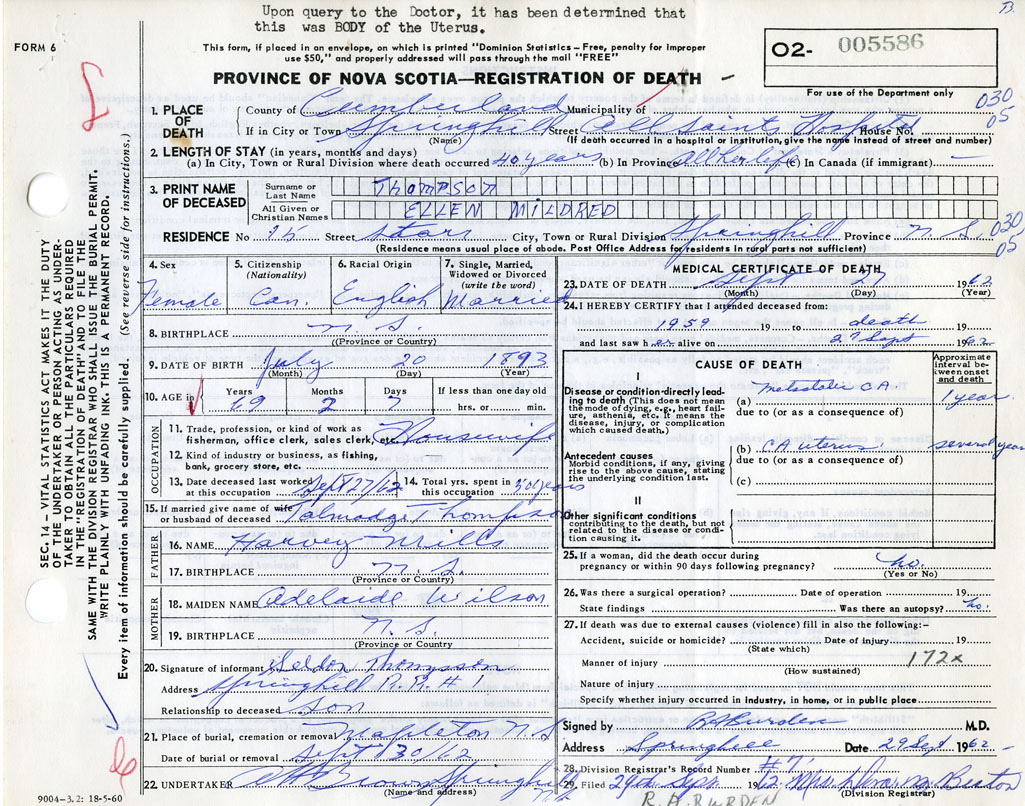 Upon query to the Doctor, it has been determined that
this was BODY of the Uterus.
B.
FORM 6
This form, if placed in an envelope, on which is printed "Dominion Statistics–Free, penalty for improper
use $50," and properly addressed will pass through the mail "FREE"
O2- 005586
For use of the Department only
PROVINCE OF NOVA SCOTIA—REGISTRATION OF DEATH
030
05
1. PLACE OF DEATH
County of Cumberland Municipality of
If in City or Town Springhill Street All Saints Hospital House No.
(Name) (If death occurred in a hospital or institution, give the name instead of street and number)
2. LENGTH OF STAY (in years, months and days)
(a) In City, Town or Rural Division where death occurred 40 years (b) In Province all her life (c) In Canada (if immigrant) —
3. PRINT NAME OF DECEASED
Surname or Last Name THOMPSON
All Given or Christian Names ELLEN MILDRED
RESIDENCE No 15 Street City, Town or Rural Division Springhill Province N.S.
030
05
(Residence means usual place of abode. Post Office Address for residents in rural parts not sufficient)
4. Sex 5. Citizenship (Nationality) 6. Racial Origin 7. Single, Married, Widowed or Divorced (write the word)
Female Can. English Married
8. BIRTHPLACE N.S.
(Province or Country)
9. DATE OF BIRTH July 20 1893
(Month) (Day) (Year)
10. AGE in Years Months Days If less than one day old
69 2 7 hrs. or min.
OCCUPATION
11. Trade, profession, or kind of work as
fisherman, office clerk, sales clerk, etc. Housewife
12. Kind of industry or business, as fishing,
bank, grocery store, etc.
13. Date deceased last worked at this occupation Sept 27/62 14. Total yrs. spent in this occupation 50 years
15. If married give name of wife or husband of deceased Talmadge Thompson
FATHER
16. NAME Harvey Mills
17. BIRTHPLACE N.S.
(Province or Country)
MOTHER
18. MAIDEN NAME Adelaide Wilson
19. BIRTHPLACE N.S.
(Province or Country)
20. Signature of informant Thompson
Address Springhill R.R.# 1
Relationship to deceased son
21. Place of burial, cremation or removal Mapleton N.S
Date of burial or removal Sept 30/62
22. UNDERTAKER Brown Springhill
(Name and address) N.S.
9004–3.2: 18-5-60
MEDICAL CERTIFICATE OF DEATH
23. DATE OF DEATH Sept 27 1962
(Month) (Day) (Year)
24. I HEREBY CERTIFY that I attended deceased from:
1959 19 to death 19
and last saw her alive on 27 Sept 1962
CAUSE OF DEATH
Approximate interval between onset and death
I
Disease or condition directly leading to death (This does not mean the mode of dying, e.g., heart failure, asthenia, etc. It means the disease, injury, or complication which caused death.)
(a) metastatic CA. 1 year
due to (or as a consequence of)
Antecedent causes
Morbid conditions, if any, giving rise to the above cause, stating the underlying condition last.
(b) CA uterus several years
due to (or as a consequence of)
(c)
II
Other significant conditions
contributing to the death, but not related to the disease or condition causing it.
25. If a woman, did the death occur during
pregnancy or within 90 days following pregnancy? no.
(Yes or No)
26. Was there a surgical operation? Date of operation 19
State findings Was there an autopsy? no.
27. If death was due to external causes (violence) fill in also the following:–
Accident, suicide or homicide? Date of injury 19
(State which)
Manner of injury 172x
(How sustained)
Nature of injury
Specify whether injury occurred in industry, in home, or in public place
Signed by R A Burden M.D.
Address Springhill Date 29 Sept 1962
28. Division Registrar's Record Number #7
29. Filed 29th Sept. 1962 Mrs Beaton
(Division Registrar)
R.A. BURDEN
SEC. 14 – VITAL STATISTICS ACT MAKES IT THE DUTY
OF THE UNDERTAKER OR PERSON ACTING AS UNDER-
TAKER TO OBTAIN ALL THE PARTICULARS REQUIRED
IN THE "REGISTRATION OF DEATH" AND TO FILE THE
SAME WITH THE DIVISION REGISTRAR WHO SHALL ISSUE THE BURIAL PERMIT.
WRITE PLAINLY WITH UNFADING INK. THIS IS A PERMANENT RECORD.
Every item of information should be carefully supplied. (See reverse side for instructions.)